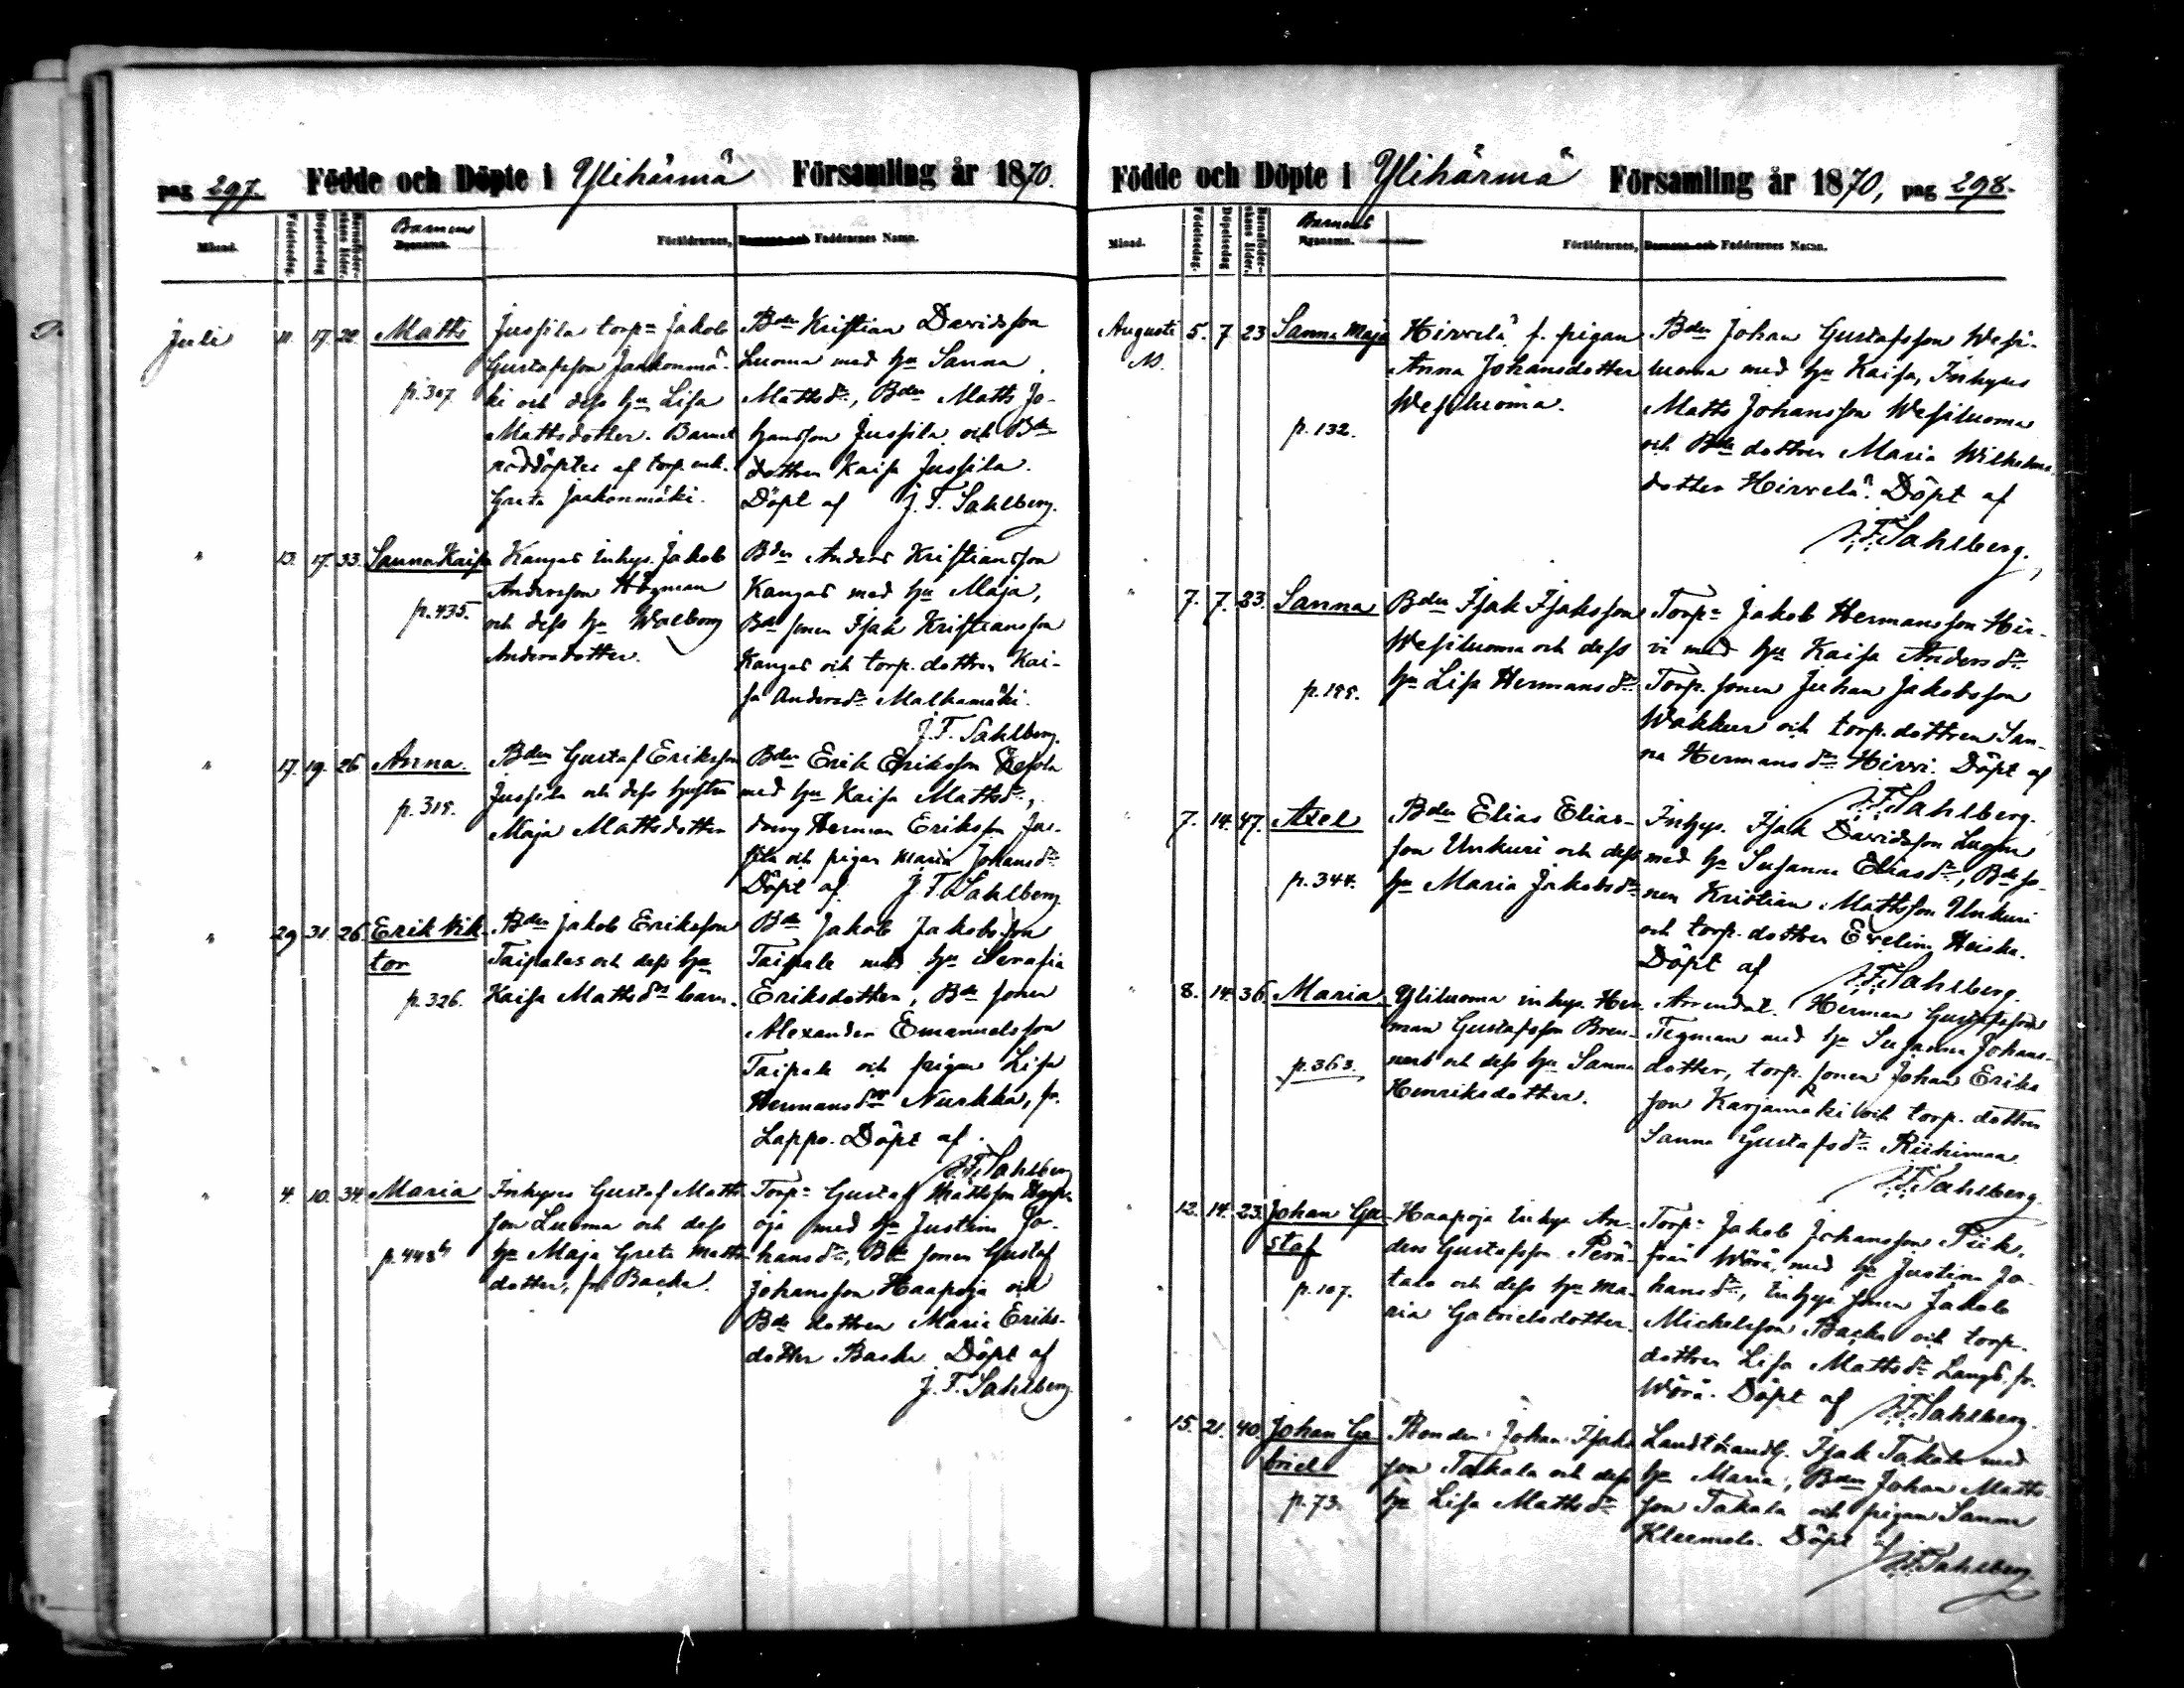 pag 297. Födde och Döpte i Ylihärmä Församling år 1870.
Månad. Födelsedag. Döpelsedag Barnaföderskans ålder. Barnens Egenamn. Föräldrarnes, Barnens och Faddrarnes Namn.
Juli 11. 17. 22. Matts
p. 307
Jussila torp:n Jakob
Gustafsson Jaakonmä-
ki och dess h:u Lisa
Mattsdotter. Barnet
nöddöptes af torp. enk.
Greta Jaakonmäki.
B:den Kristian Davidsson
Luoma med h:u Sanna
Mattsd:r, B:den Matts Jo-
hansson Jussila och B:de
dottren Kaisa Jussila.
Döpt af J. F. Sahlberg.
" 13. 17. 33. Sanna Kaisa
p. 435.
Kangas inhys. Jakob
Andersson Högman
och dess h:u Walborg
Andersdotter.
B:den Anders Kristiansson
Kangas med h:u Maja,
B:de sonen Isak Kristiansson
Kangas och torp. dottren Kai-
sa Andersd:r Malkamäki.
J. F. Sahlberg.
" 17. 19. 26 Anna.
p. 315.
B:den Gustaf Eriksson
Jussila och dess hustru
Maja Mattsdotter
B:den Erik Eriksson
med h:u Kaisa Mattsd:r,
dräng Herman Eriksson Jus-
sila och pigan Maria Johansd:r
Döpt af J. F. Sahlberg
" 29 31. 26 Erik Vik-
tor
p. 326.
B:den Jakob Eriksson
Taipales och dess h:u
Kaisa Mattsd:rs barn.
B:de Jakob Jakobsson
Taipale med h:u Serafia
Eriksdotter, B:de sonen
Alexander Emanuelsson
Taipale och pigan Lisa
Hermansd:r Nurkka, fr.
Lappo. Döpt af
J. F. Sahlberg
" 4. 10. 34. Maria
p. 448 b
Inhyses Gustaf Matts-
son Luoma och dess
h:u Maja Greta Matts-
dotter, fr. Backa.
Torp:n Gustaf Mattsson Haapa-
oja med h:u Justina Jo-
hansd:r, B:de sonen Gustaf
Johansson Haapoja och
B:de dottren Maria Eriks-
dotter Backa Döpt af
J. F. Sahlberg.
Födde och Döpte i Ylihärmä Församling år 1870, pag 298.
Månad. Födelsedag. Döpelsedag Barnaföderskans ålder. Barnens Egenamn. Föräldrarnes, Barnens och Faddrarnes Namn.
Augusti 5. 7 23 Sanna Maja
p. 132.
Hirvelä f. pigan
Anna Johansdotter
Wesiluoma.
B:den Johan Gustafsson Wesi-
luoma med h:u Kaisa, Inhyses
Matts Johansson Wesiluoma
och B:de dottren Maria Wilhelms
dotter Hirvelä. Döpt af
J. F. Sahlberg.
" 7. 7. 23. Sanna
p. 195.
B:den Isak Isaksson
Wesiluoma och dess
h:u Lisa Hermansd:r
Torp:n Jakob Hermansson Hir-
vi med h:u Kaisa Andersd:r
Torp. sonen Juhan Jakobsson
Wakkuri och torp. dottren San-
na Hermansd:r Hirvi. Döpt af
J. F. Sahlberg.
" 7. 14. 47. Axel
p. 344.
B:den Elias Elias-
son Unkuri och dess
h:u Maria Jakobsd:r
Inhys. Isak Davidsson Luoma
med h:u Susanna Eliasd:r, B:de so-
nen Kristian Mattsson Unkuri
och torp. dottren Evelina Heiska.
Döpt af J. F. Sahlberg.
" 8. 14. 36. Maria
p. 363.
Yliluoma inhys. Her-
man Gustafsson Bren-
nars och dess h:u Sanna
Henriksdotter.
Arrendat. Herman Gustafsson
Tegman med h:u Susanna Johans-
dotter, torp. sonen Johan Eriks
son Karjamäki och torp. dottren
Sanna Gustafsd:r Riihimaa
J. F. Sahlberg.
" 12. 14. 23. Johan Gu-
staf
p. 107.
Haapoja inhys An-
ders Gustafsson Perä-
talo och dess h:u Ma-
ria Gabrielsdotter.
Torp:n Jakob Johansson Piik,
från Wörå, med h:u Justina Jo-
hansd:r, inhys sonen Jakob
Michelsson Backa och torp.
dottren Lisa Mattsd:r Långs. fr.
Wörå. Döpt af J. F. Sahlberg.
" 15. 21. 40. Johan Ga-
briel
p. 73.
Bonden Johan Isaks
son Takala och dess
h:u Lisa Mattsd:r
Landthandl. Isak Takala med
h:u Maria, B:den Johan Matts-
son Takala och pigan Sanna
Kleemola. Döpt af
J. F. Sahlberg